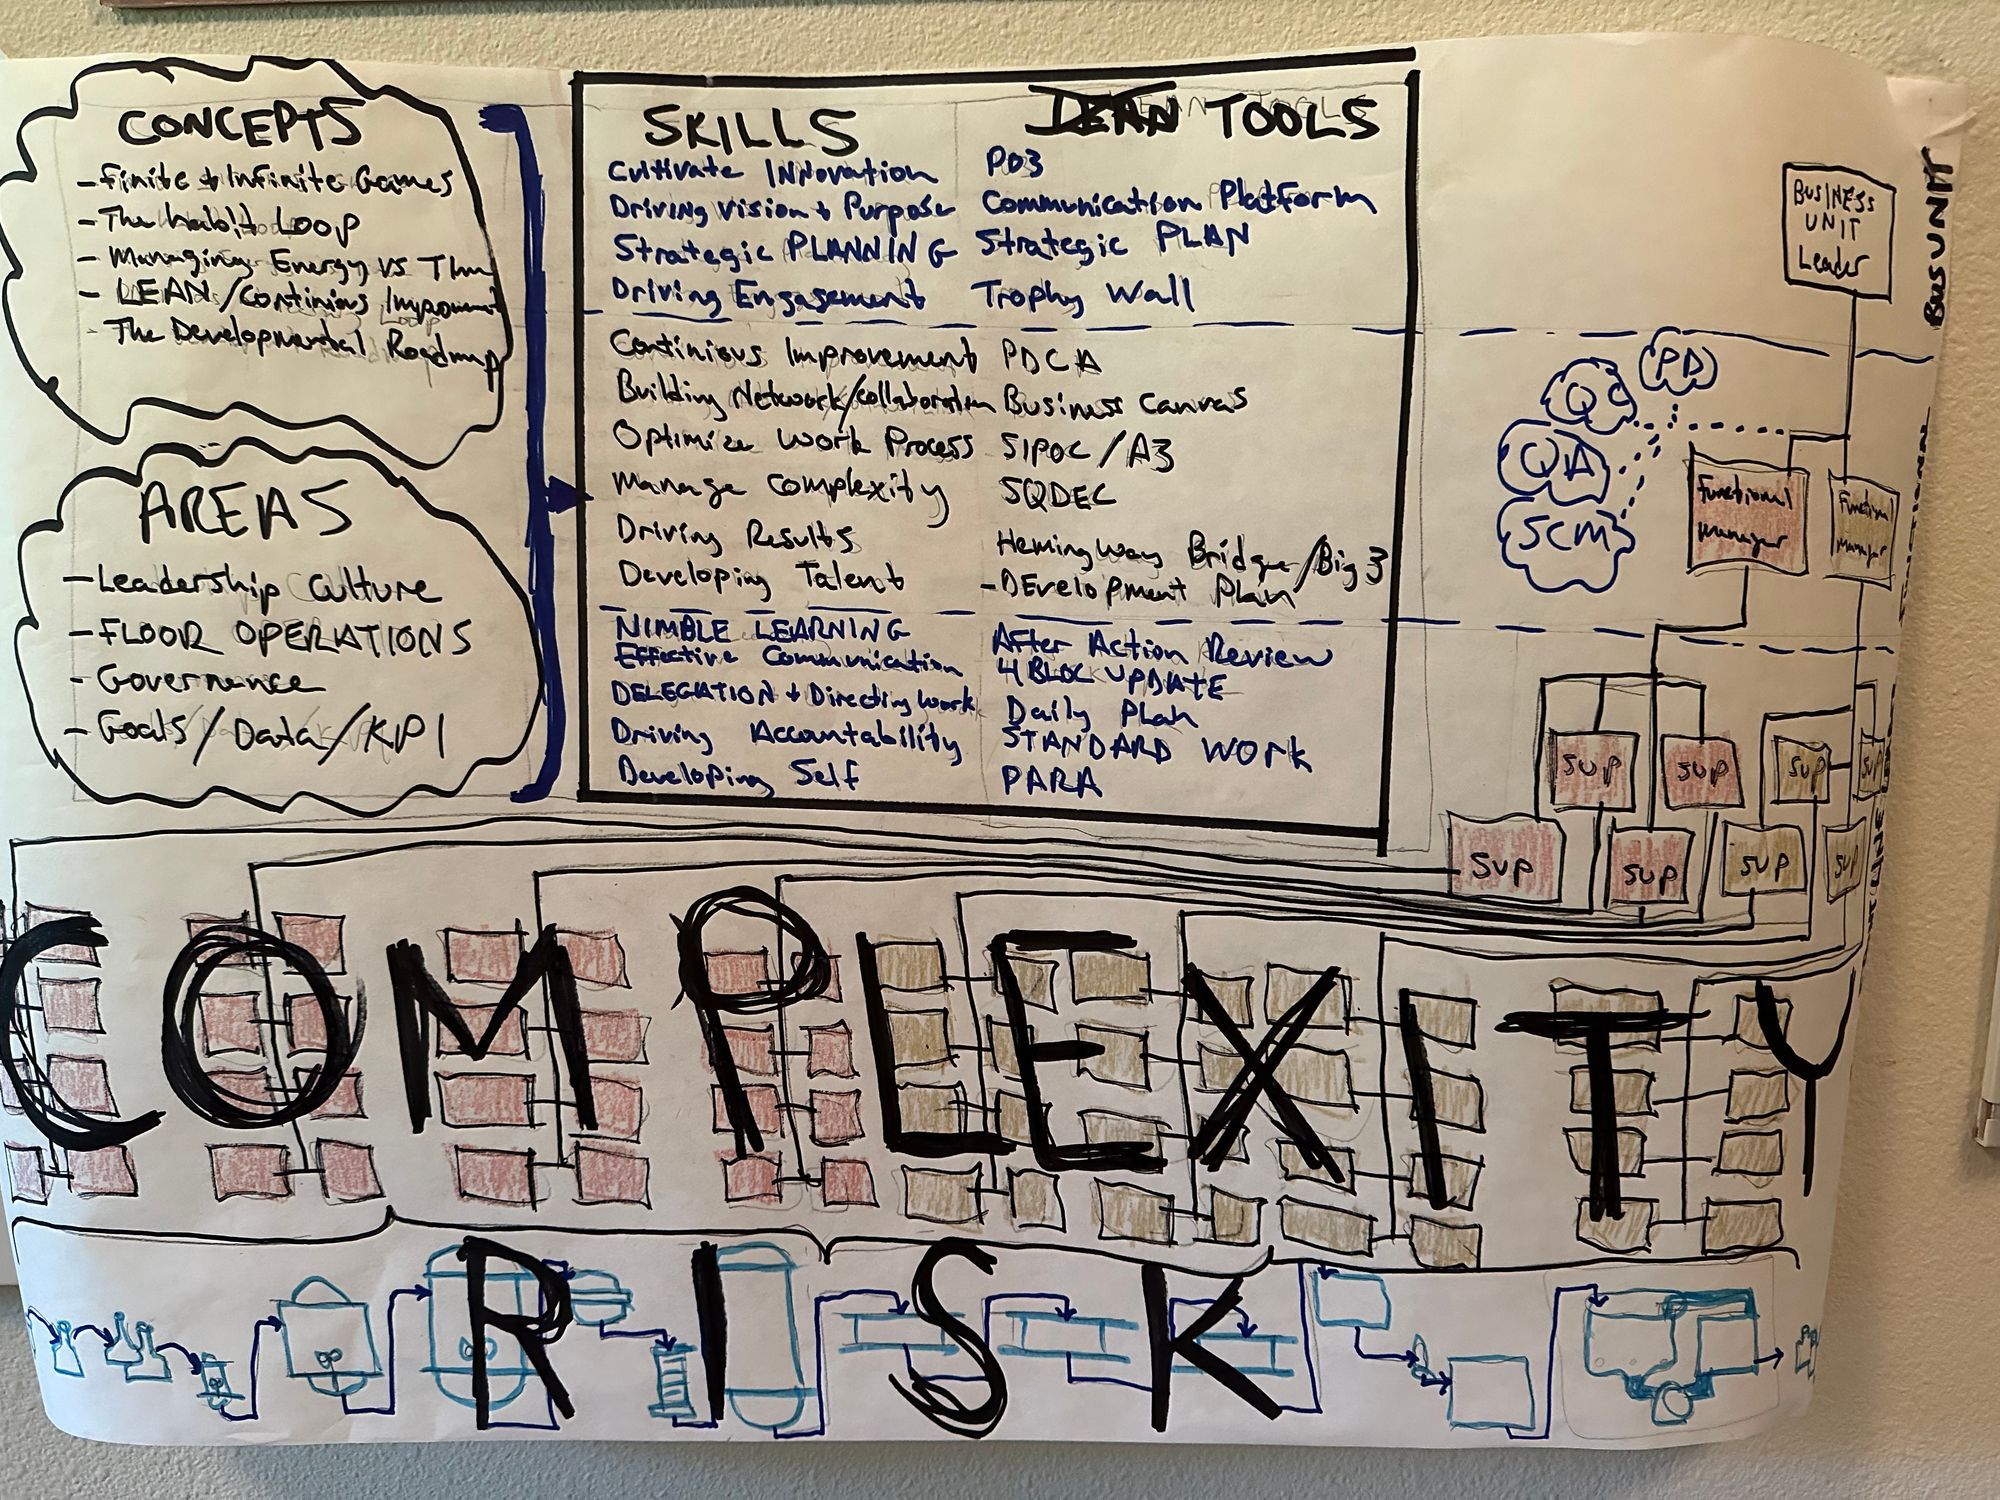 CONCEPTS
- Finite + Infinite Games
- The habit Loop
- Managing Energy vs
- LEAN/Continious
- The Developmental Roadmap
AREAS
- Leadership Culture
- FLOOR OPERATIONS
- Governence
- Goals/Data/KPI
SKILLS
TOOLS
Cultivate Innovation P03
Driving Vision + Purpose Communication Platform
Strategic PLANNING Strategic PLAN
Driving Engagement Trophy Wall
Continious Improvement PDCA
Building Network/collaboration Business Canvas
Optimize Work Process SIPOC/A3
Manage Complexity SQDEC
Driving Results Hemingway Bridge/Big 3
Developing Talent - DEvelopment Plan
NIMBLE LEARNING After Action Review
Effective Communication 4 BLOC UPDATE
DELEGATION + Directing Work Daily Plan
Driving Accountability STANDARD WORK
Developing Self PARA
BUSINESS
UNIT
Leader
BUS UNIT
PD
QC
QA
SCM
Functional
Manager
Functional
Manager
FUNCTIONAL
SUP
SUP
SUP
SUP
SUP
SUP
SUP
SUP
COMPLEXITY
RISK